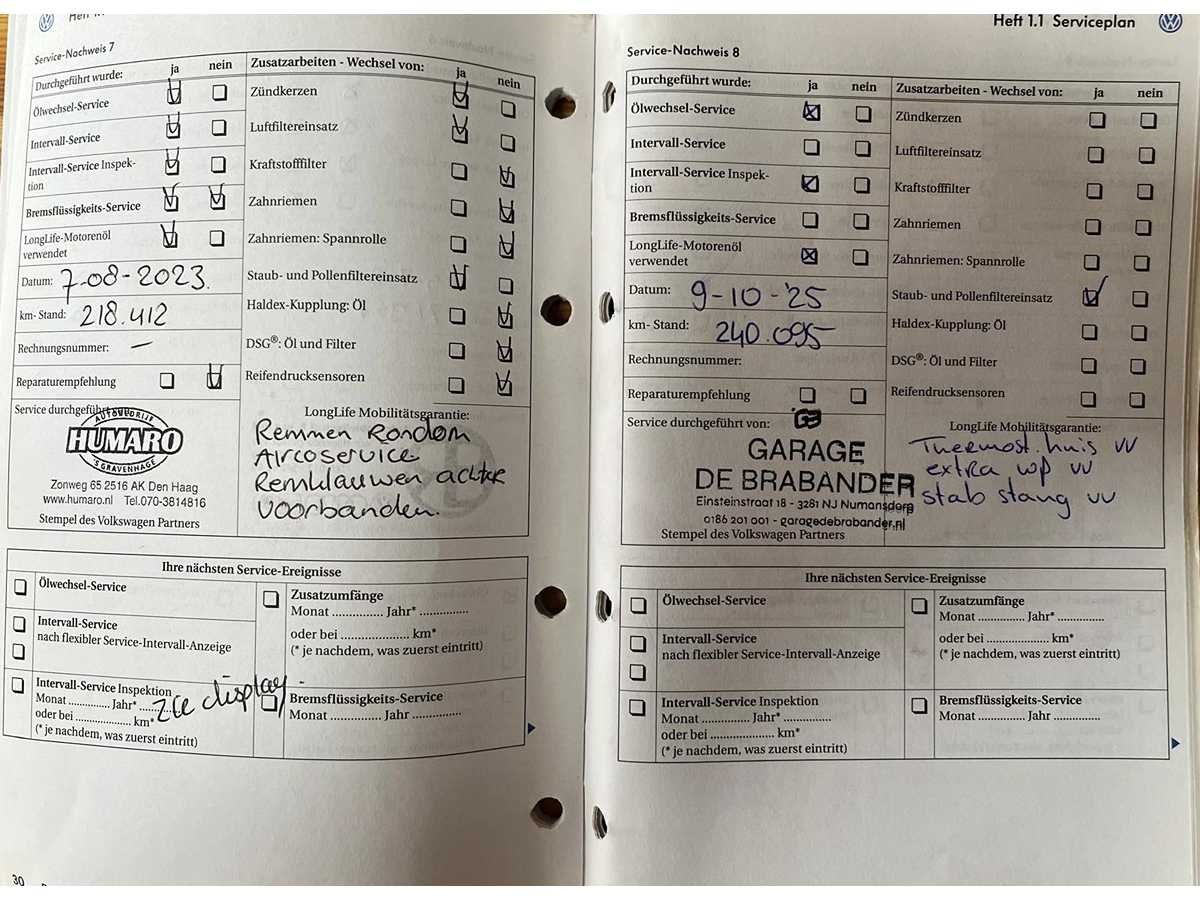 Heft 1.1 Serviceplan
Service-Nachweis 7
Durchgeführt wurde: ja nein
Ölwechsel-Service
Intervall-Service
Intervall-Service Inspek-
tion
Bremsflüssigkeits-Service
LongLife-Motorenöl
verwendet
Datum: 7-08-2023.
km- Stand: 218.412
Rechnungsnummer: —
Reparaturempfehlung
Zusatzarbeiten - Wechsel von: ja nein
Zündkerzen
Luftfiltereinsatz
Kraftstofffilter
Zahnriemen
Zahnriemen: Spannrolle
Staub- und Pollenfiltereinsatz
Haldex-Kupplung: Öl
DSG®: Öl und Filter
Reifendrucksensoren
Service durchgeführt
AUTOBEDRIJF
HUMARO
'S GRAVENHAGE
Zonweg 65 2516 AK Den Haag
www.humaro.nl Tel.070-3814816
Stempel des Volkswagen Partners
LongLife Mobilitätsgarantie:
Remmen Rondom
Aircoservice
Remklauwen achter
voorbanden.
Ihre nächsten Service-Ereignisse
Ölwechsel-Service
Intervall-Service
nach flexibler Service-Intervall-Anzeige
Intervall-Service Inspektion
Monat .................. Jahr* ..........
oder bei ..................... km*
(* je nachdem, was zuerst eintritt)
zie display.
Zusatzumfänge
Monat ............... Jahr* ..............
oder bei .................... km*
(* je nachdem, was zuerst eintritt)
Bremsflüssigkeits-Service
Monat ............... Jahr ...............
30
Service-Nachweis 8
Durchgeführt wurde: ja nein
Ölwechsel-Service
Intervall-Service
Intervall-Service Inspek-
tion
Bremsflüssigkeits-Service
LongLife-Motorenöl
verwendet
Datum: 9-10-'25
km- Stand: 240.095
Rechnungsnummer:
Reparaturempfehlung
Zusatzarbeiten - Wechsel von: ja nein
Zündkerzen
Luftfiltereinsatz
Kraftstofffilter
Zahnriemen
Zahnriemen: Spannrolle
Staub- und Pollenfiltereinsatz
Haldex-Kupplung: Öl
DSG®: Öl und Filter
Reifendrucksensoren
Service durchgeführt von:
GARAGE
DE BRABANDER
Einsteinstraat 18 - 3281 NJ Numansdorp
0186 201 001 - garagedebrabander.nl
Stempel des Volkswagen Partners
LongLife Mobilitätsgarantie:
Thermost. huis VV
extra wp VV
stab stang VV
Ihre nächsten Service-Ereignisse
Ölwechsel-Service
Intervall-Service
nach flexibler Service-Intervall-Anzeige
Intervall-Service Inspektion
Monat ............... Jahr* ...............
oder bei .................... km*
(* je nachdem, was zuerst eintritt)
Zusatzumfänge
Monat ............... Jahr* ...............
oder bei .................... km*
(* je nachdem, was zuerst eintritt)
Bremsflüssigkeits-Service
Monat ............... Jahr ...............